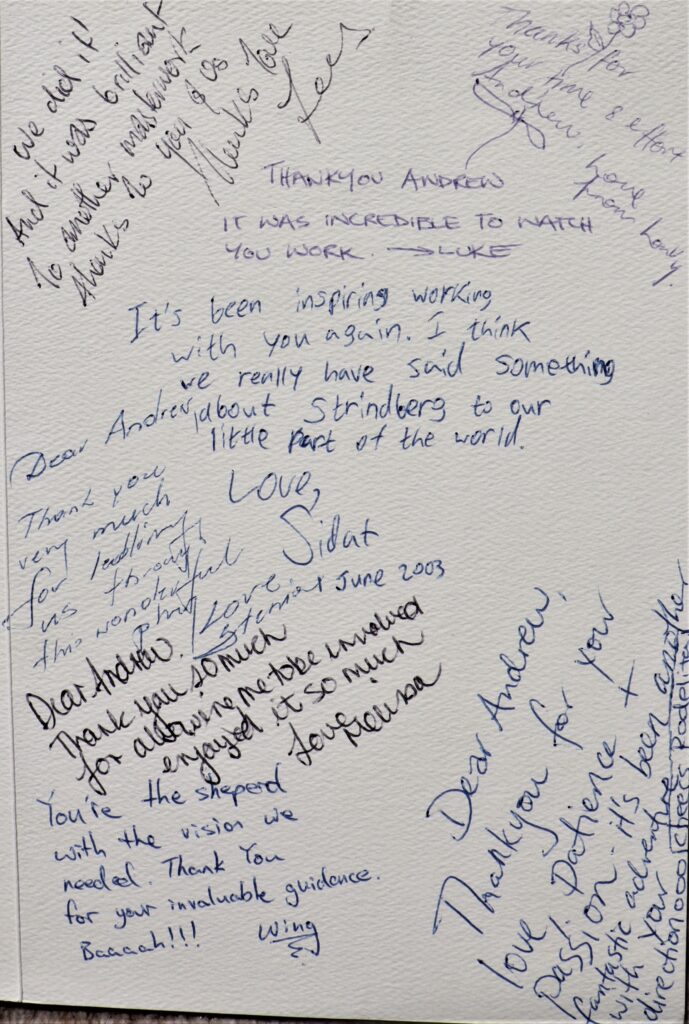 We did it!
And it was brilliant
To another masterwork
thanks to you & us
Thanks Love
Thanks for
your time & effort
Andrew, love
from
THANKYOU ANDREW
IT WAS INCREDIBLE TO WATCH
YOU WORK. → LUKE
It's been inspiring working
with you again. I think
we really have said something
about Strindberg to our
little part of the world.
Love,
Sidat
June 2003
Dear Andrew
Thank you
very much
for leading
us through
this wonderful
play
Love
Dear Andrew.
Thank you so much
for allowing me to be involved
enjoyed it so much
Love
Melissa
You're the sheperd
with the vision we
needed. Thank You
for your invaluable guidance.
Baaaah!!!
Wing
Dear Andrew,
Thankyou for your
love, patience +
passion. it's been another
fantastic adventure
with your
direction ooo cheers